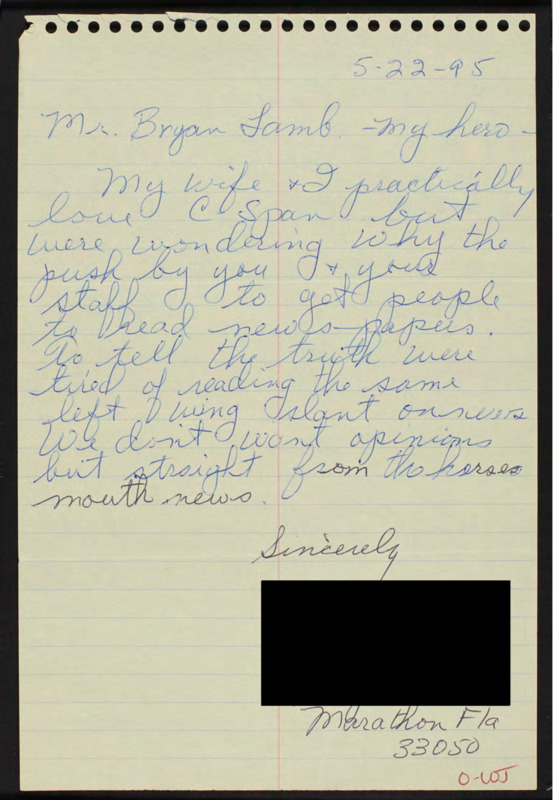 5-22-95
Mr. Bryan Lamb. - My hero -
My wife & I practically
love C Span but
were wondering why the
push by you & your
staff to get people
to read news-papers.
To tell the truth were
tired of reading the same
left wing slant on news
We don't want opinions
but straight from the horses
mouth news.
Sincerely
Marathon Fla
33050